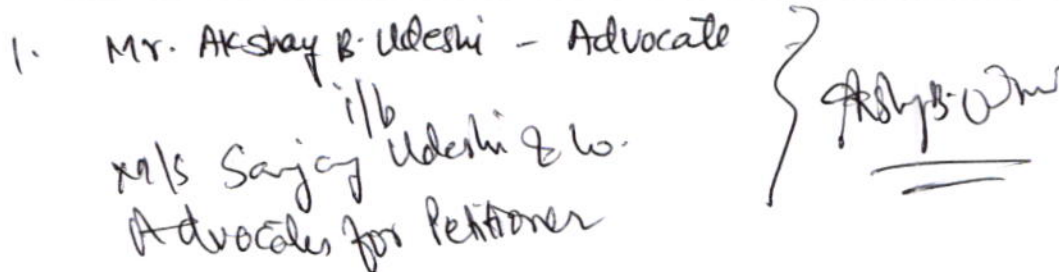 1. Mr. Akshay B. Udeshi - Advocate
i/b
M/s Sanjay Udeshi & Co.
Advocates for Petitioner
Akshay B. Udeshi